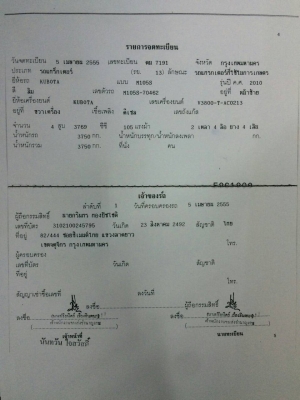 รายการจดทะเบียน
วันจดทะเบียน 5 เมษายน 2555 เลขทะเบียน 7191 จังหวัด กรุงเทพมหานคร
ประเภท รถแทรกเตอร์ (รย. 13) ลักษณะ รุ่นปี ค.ศ. 2010
ยี่ห้อรถ KUBOTA แบบ M105S
สี ส้ม เลขตัวรถ M105S-70462 อยู่ที่
ยี่ห้อเครื่องยนต์ KUBOTA เลขเครื่องยนต์
อยู่ที่ ขวาเครื่อง เชื้อเพลิง ดีเซล เลขถังแก๊ส
จำนวน 4 สูบ 3769 ซีซี 105 แรงม้า 2 เพลา 4 ล้อ ยาง 4 เส้น
น้ำหนักรถ 3750 กก. น้ำหนักบรรทุก/น้ำหนักลงเพลา กก.
น้ำหนักรวม 3750 กก. ที่นั่ง คน
เจ้าของรถ
ลำดับที่ 1 วันที่ครอบครองรถ 5 เมษายน 2555
ผู้ถือกรรมสิทธิ์
เลขที่บัตร 3102100245795 วันเกิด 23 สิงหาคม 2492 สัญชาติ ไทย
ที่อยู่ 82/444 แขวงลาดยาว
เขตจตุจักร กรุงเทพมหานคร โทร.
ผู้ครอบครอง
เลขที่บัตร วันเกิด สัญชาติ
ที่อยู่ โทร.
สัญญาเช่าซื้อเลขที่ ลงวันที่
ผู้ถือกรรมสิทธิ์
ลงชื่อ ลงชื่อ
เจ้าหน้าที่ นายทะเบียน